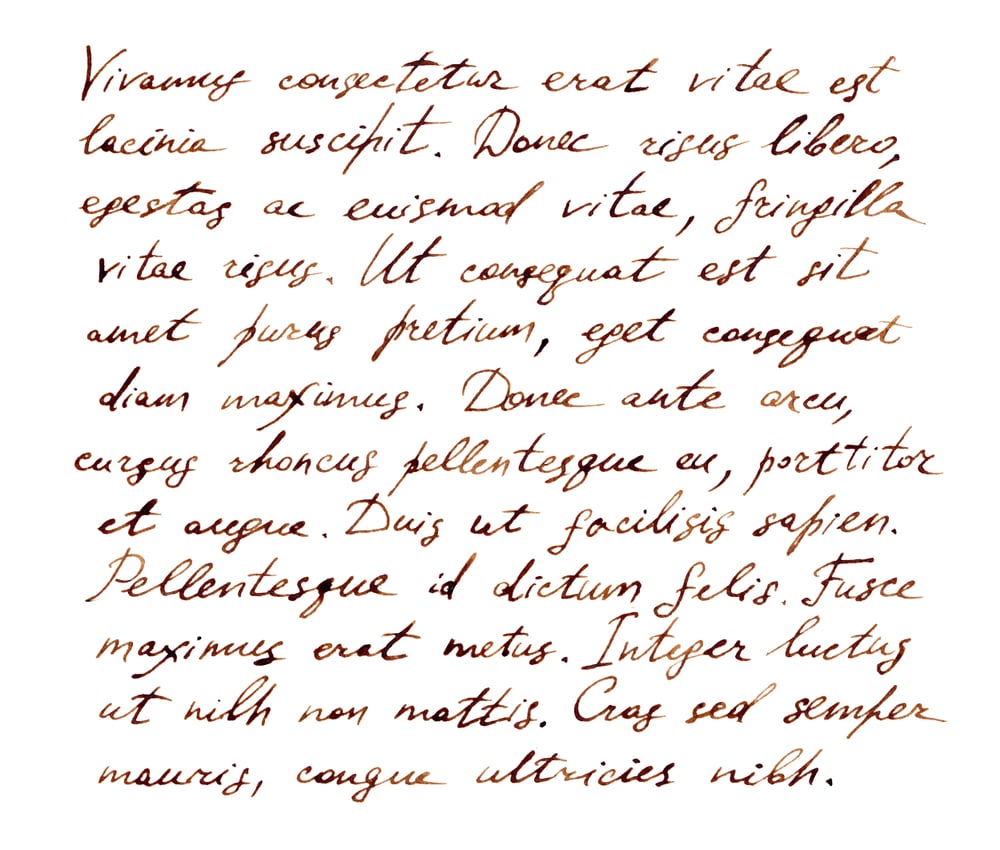 Vivamus consectetur erat vitae est
lacinia suscipit. Donec risus libero,
egestas ac euismod vitae, fringilla
vitae risus. Ut consequat est sit
amet purus pretium, eget consequat
diam maximus. Donec ante arcu,
cursus rhoncus pellentesque eu, porttitor
et augue. Duis ut facilisis sapien.
Pellentesque id dictum felis. Fusce
maximus erat metus. Integer luctus
ut nibh non mattis. Cras sed semper
mauris, congue ultricies nibh.